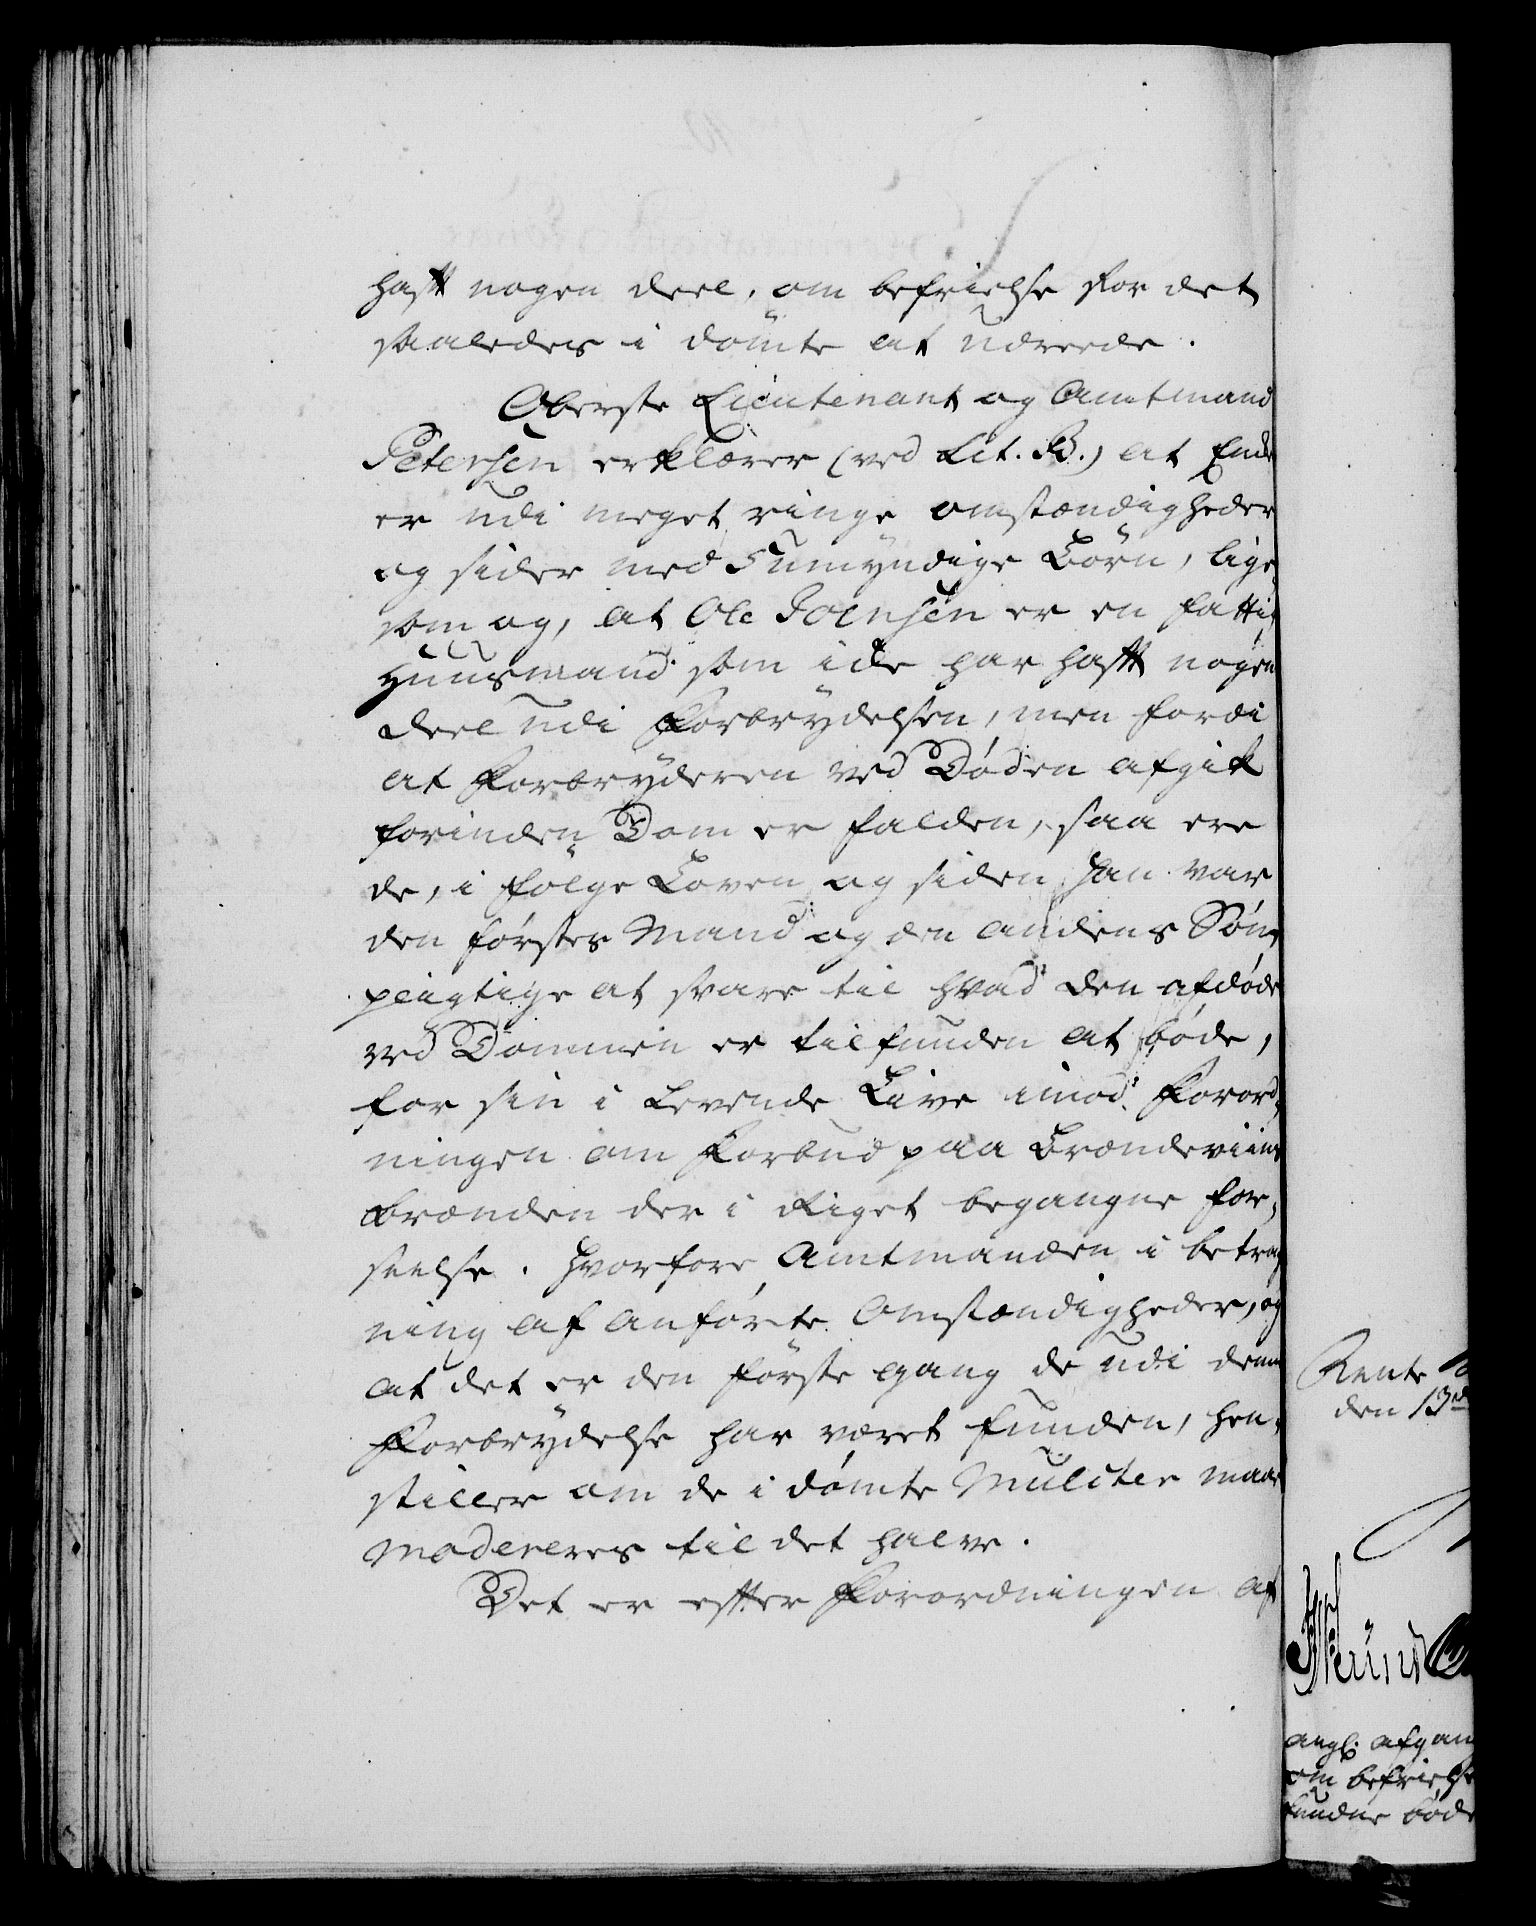 haft nogen deel, om befrielse for det
saaledes i dömte at udreede.
Oberste Lieutenant og Amtmand
Petersen erklærer (ved Lit. B.) at Enk
er udi meget ringe omstændigheder
og sider med 5 umyndige Börn, lige,
som og, at Ole Joensen er en fattig
Huusmand som icke har haft nogen
deel udi Forbrydelsen, men fordi
at Forbryderen ved Döden afgik
forinden Dom er falden, saa ere
de, i fölge Loven og siden han var
den förstes Mand og den andens Sön,
pligtige at svare til hvad den afdöde
ved Dommen er tilfunden at böde,
for sin i Levende Live imod Forord,
ningen om Forbud paa Brændeviins
brænden der i Riget begangne for,
seelse. Hvorfore Amtmanden i betrag
ning af anförte Omstændigheder, og
at det er den förste gang de udi denne
Forbrydelse har været funden, hen,
stiller om de i dömte Mulcter maae
modereres til det halve.
Det er efter Forordningen af
Rente
den 13de
angl. afgan
om befrielse
fundne böde